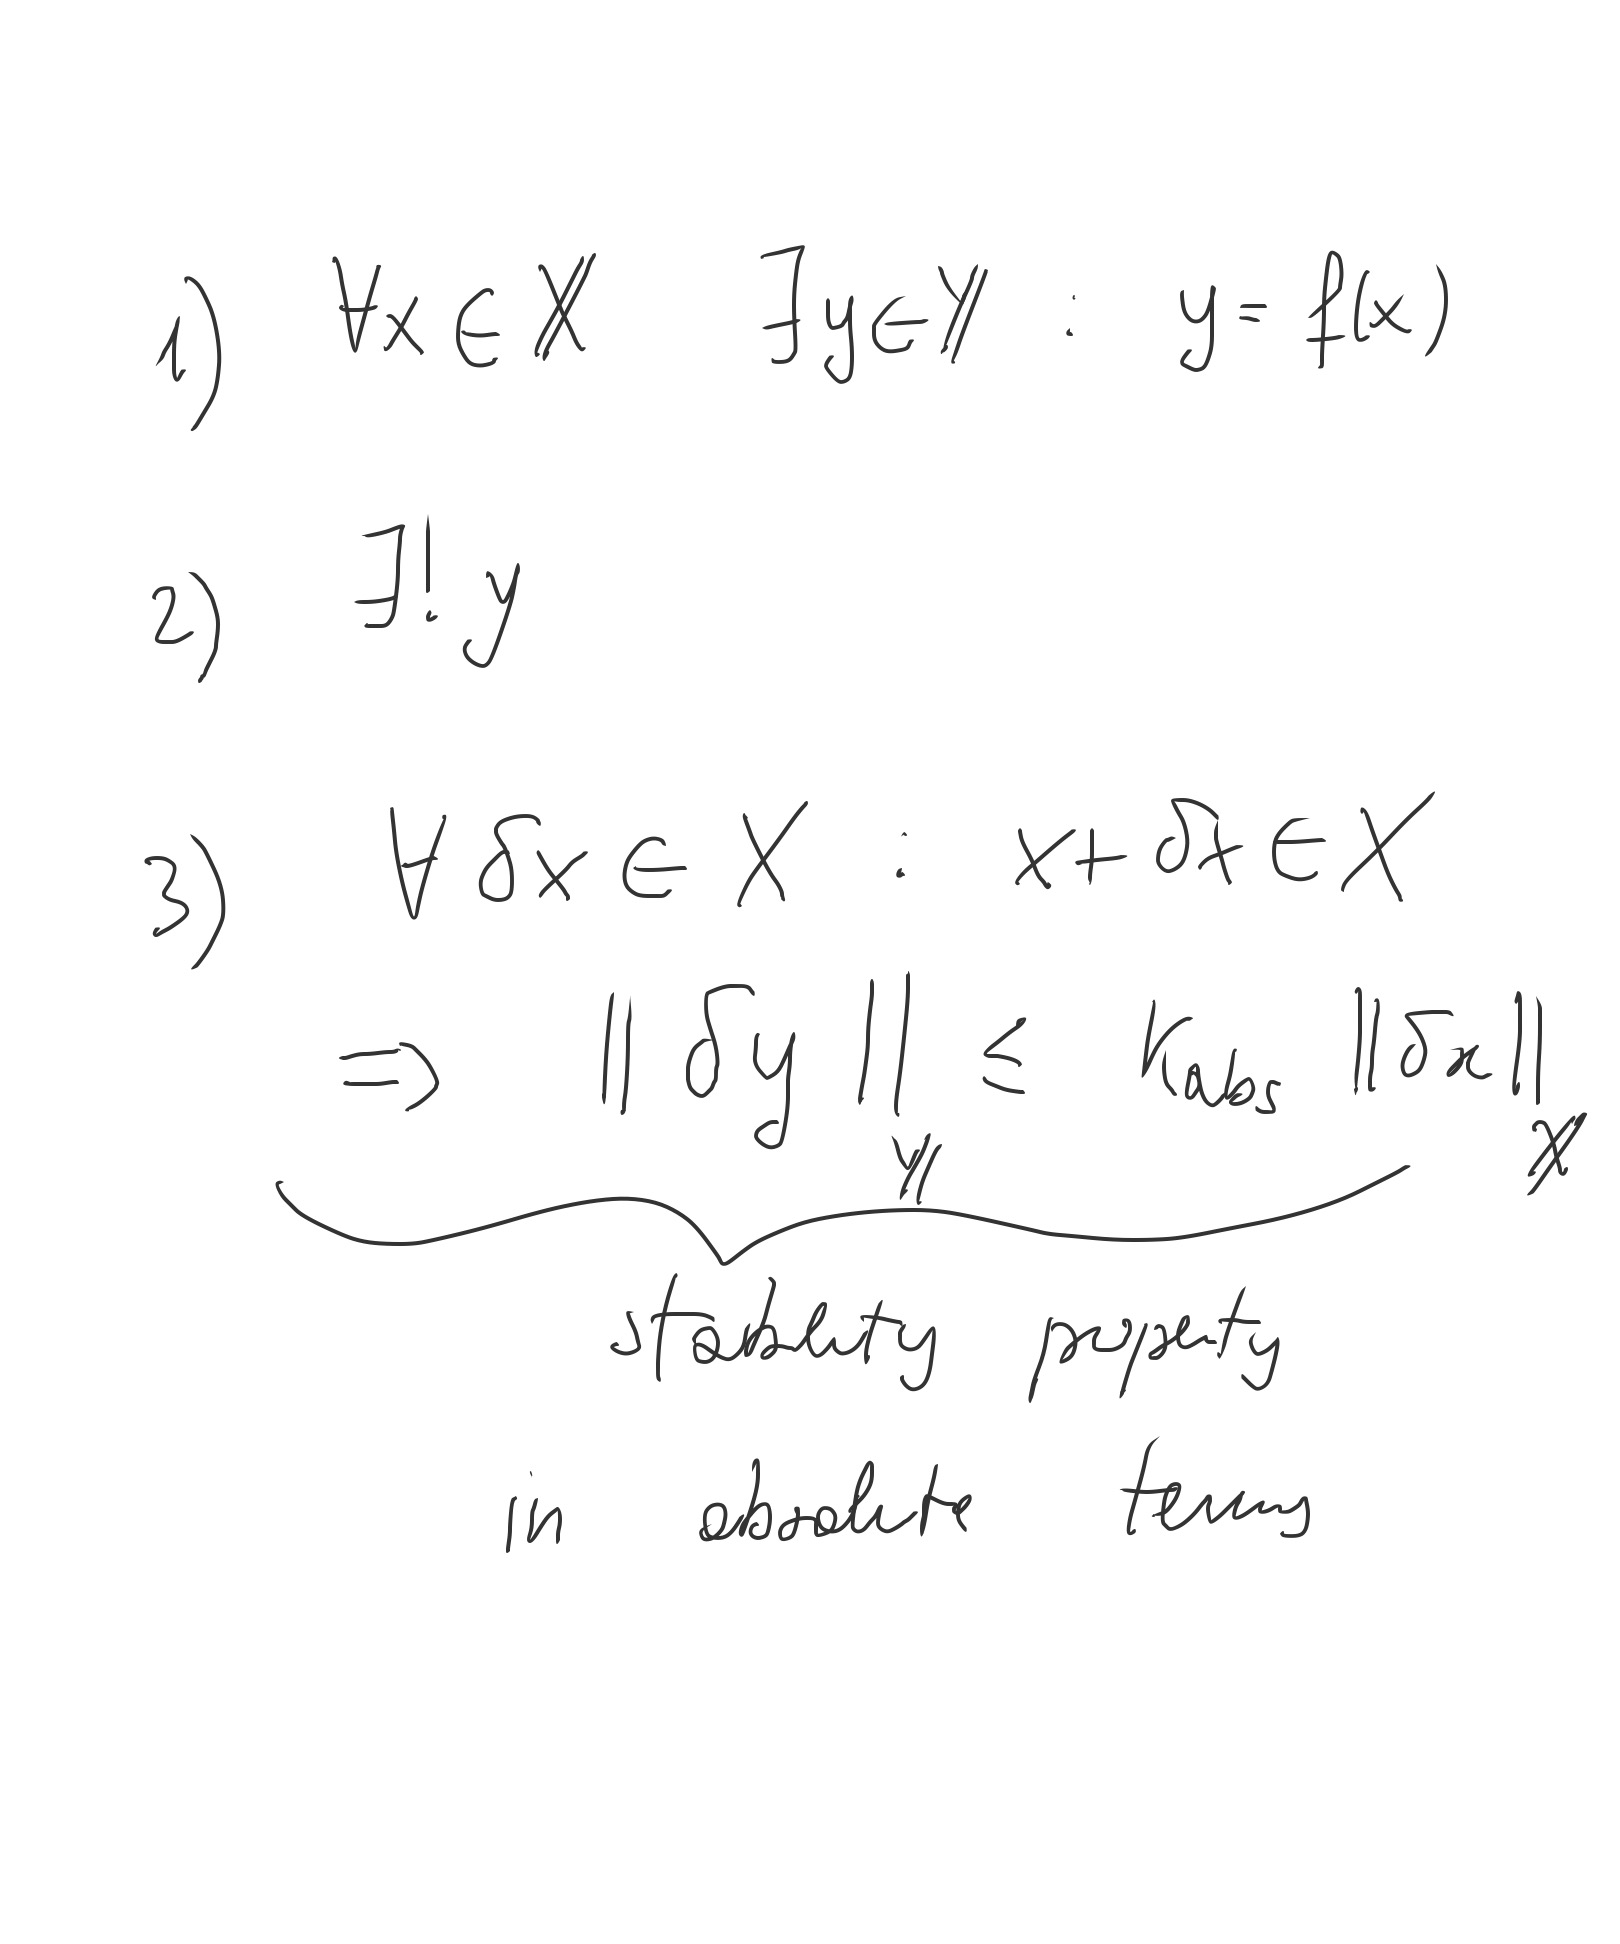 1) ∀x ∈ 𝕏 ∃ y ∈ 𝕐 : y = f(x)
2) ∃! y
3) ∀ δx ∈ X : x + δx ∈ X
⇒ ‖ δy ‖_𝕐 ≤ K_abs ‖δx‖_𝕏
stability property
in absolute terms